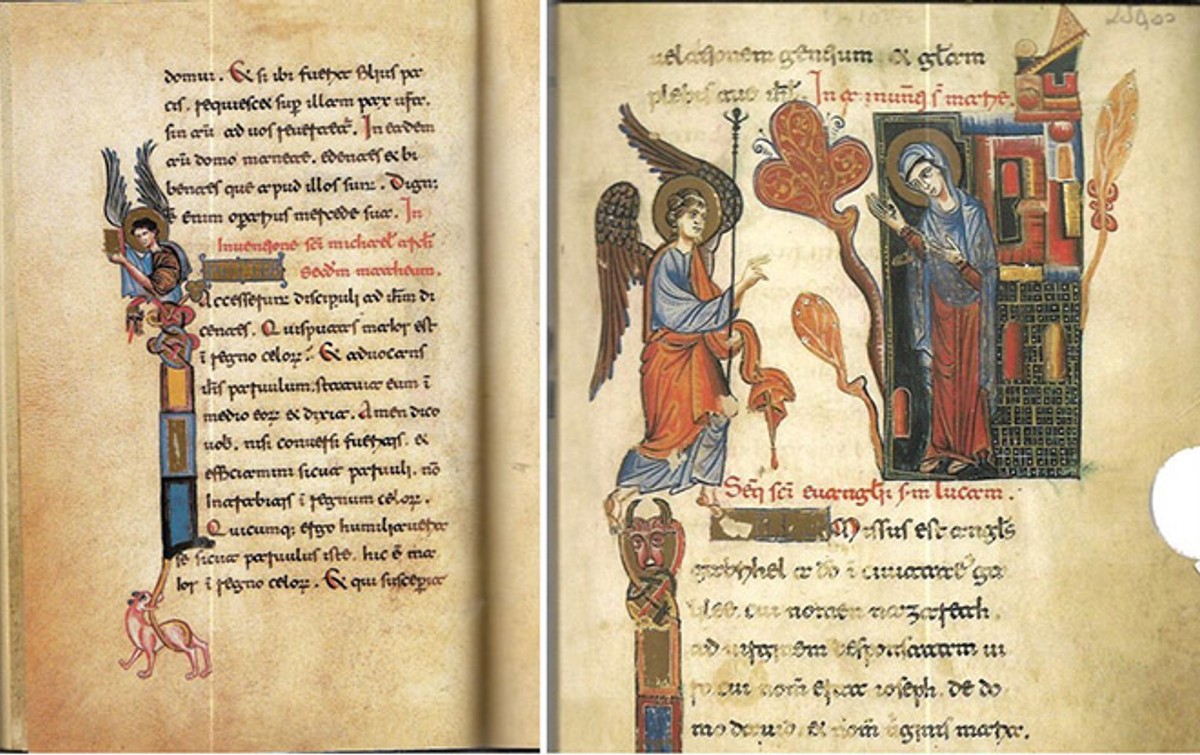 domui. Et si ibi fuerit filius pa
cis. requiescet sup illam pax ura.
sin aū ad uos reuertetur. In eadem
aū domo manete. edentes et bi
bentes que apud illos sunt. Dignꝰ
ē enim operarius mercede sua. In
Inuentione sc̄i michael arch
Secdm matheum.
Accesserunt discipuli ad ih̄m di
centes. Quis putas maior est
ī regno celoꝝ. Et aduocans
ih̄s paruulum. statuit eum ī
medio eoꝝ et dixit. Amen dico
uob. nisi conuersi fueritis. et
efficiamini sicut paruuli. nō
Intrabitis ī regnum celoꝝ.
Quicumq; ergo humiliauerit
se sicut paruulus iste. hic ē ma
ior ī regno celoꝝ. Et qui susceperit
uelationem gentium et gl̄am
plebis tue
In s marie.
Seq̄ sc̄i euanglii s-m lucam.
Missus est angl̄s
gabrihel a dō ī ciuitatē ga
lilee. cui nomen nazareth.
ad uirginem desponsatam ui
ro cui nom̄ erat ioseph. de do
mo dauid. et nom̄ uginis maria.